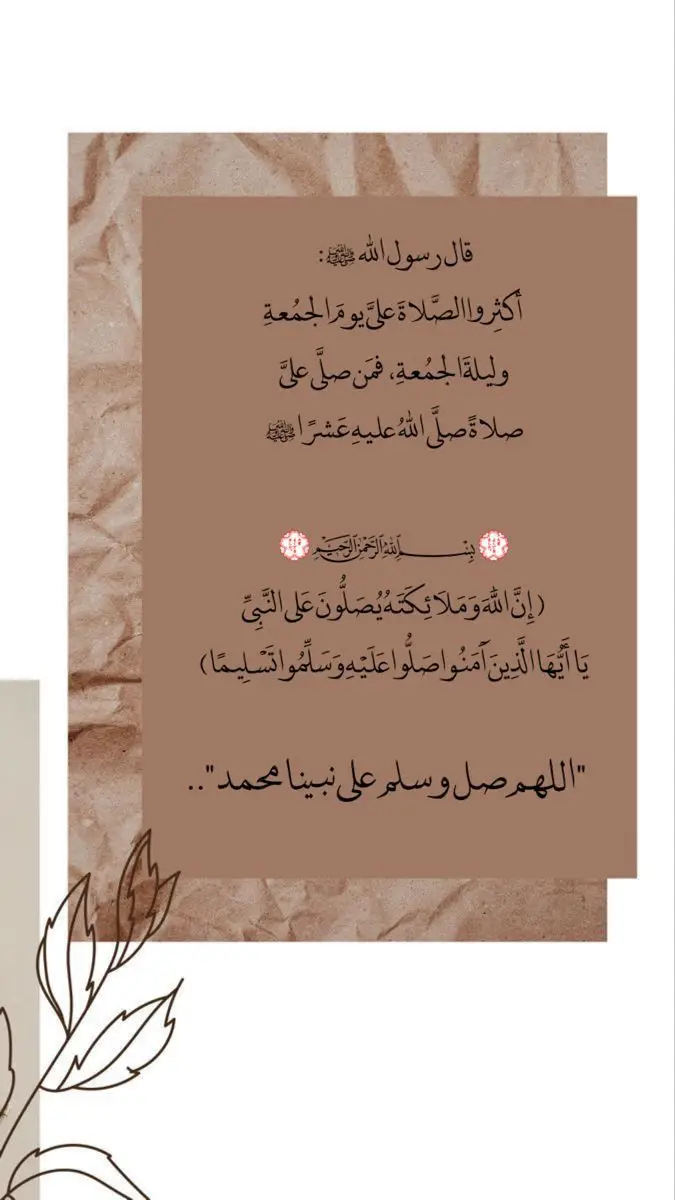 قال رسول الله ﷺ:
أكثِروا الصَّلاةَ عليَّ يومَ الجمُعةِ
وليلةَ الجمُعةِ، فمَن صلَّى عليَّ
صلاةً صلَّى اللهُ عليهِ عَشرًا ﷺ
﷽
(إِنَّ اللَّهَ وَمَلَائِكَتَهُ يُصَلُّونَ عَلَى النَّبِيِّ
يَا أَيُّهَا الَّذِينَ آمَنُوا صَلُّوا عَلَيْهِ وَسَلِّمُوا تَسْلِيمًا)
"اللهم صل وسلم على نبينا محمد"..